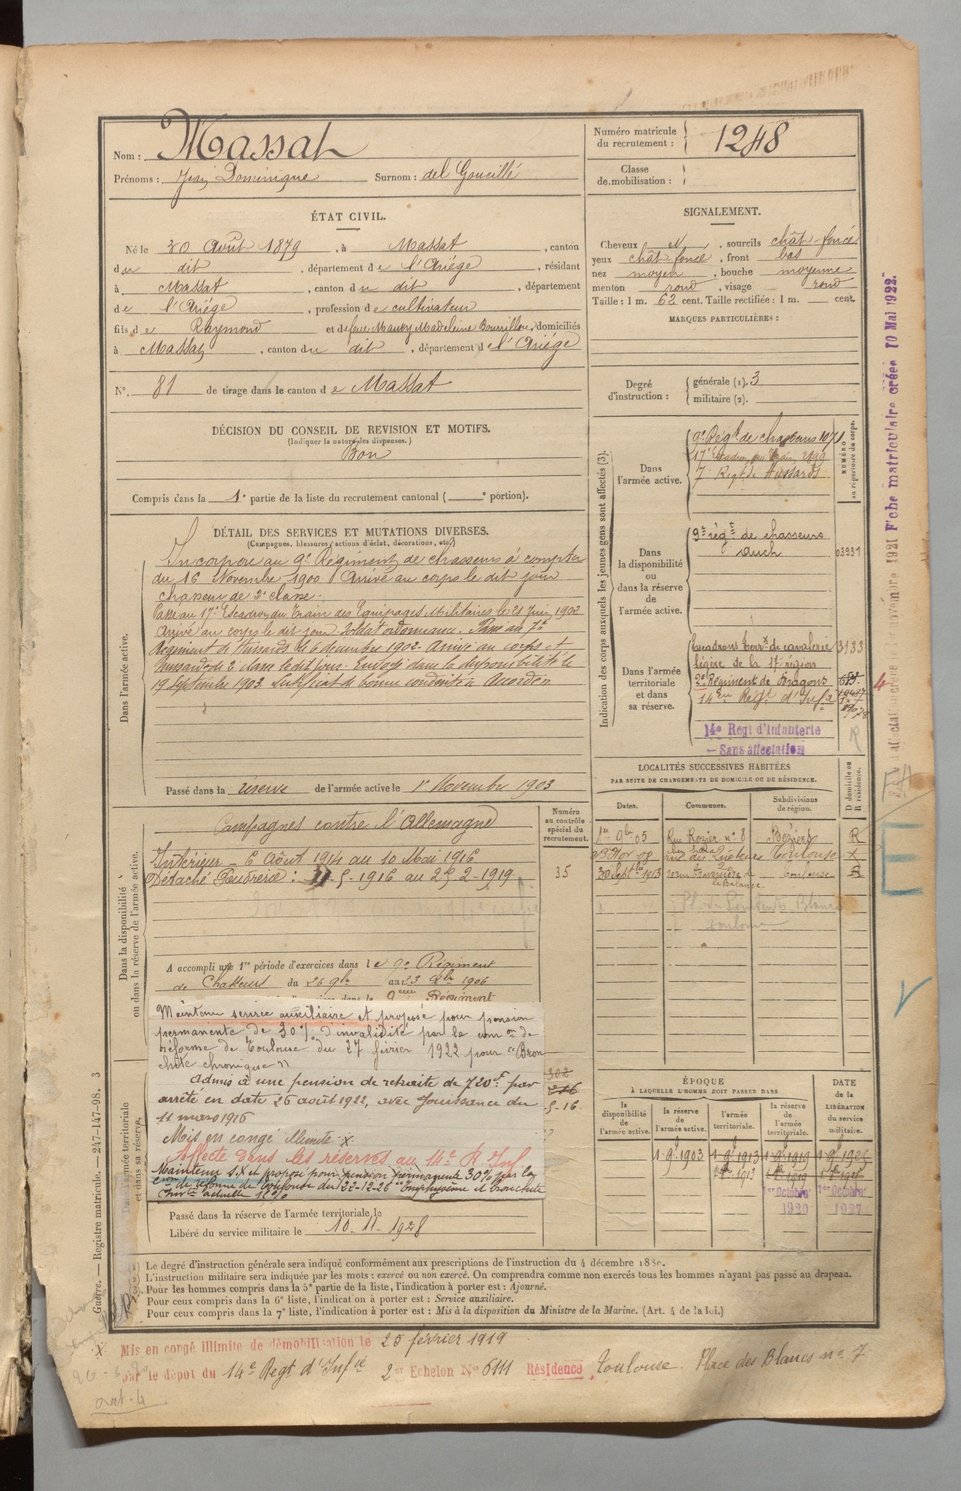 Nom : Massat
Prénoms : Jean Dominique Surnom : del Goucillé
Numéro matricule du recrutement : 1248
Classe de mobilisation :
ÉTAT CIVIL.
Né le 30 Août 1879, à Massat, canton
du dit, département de l'Ariège, résidant
à Massat, canton du dit, département
de l'Ariège, profession de cultivateur
fils de Raymond et de feue Maury Madeleine, domiciliés
à Massat, canton du dit, département de l'Ariège
N° 81 de tirage dans le canton de Massat
DÉCISION DU CONSEIL DE REVISION ET MOTIFS.
(Indiquer la nature des dispenses.)
Bon
Compris dans la 1e partie de la liste du recrutement cantonal ( e portion).
SIGNALEMENT.
Cheveux, sourcils chât-foncé
yeux chât foncé, front bas
nez moyen, bouche moyenne
menton rond, visage rond
Taille : 1 m. 62 cent. Taille rectifiée : 1 m. cent.
MARQUES PARTICULIÈRES :
Degré d'instruction : générale (1). 3
militaire (2).
DÉTAIL DES SERVICES ET MUTATIONS DIVERSES.
(Campagnes, blessures, actions d'éclat, décorations, etc.)
Dans l'armée active.
Incorporé au 9e Régiment de chasseurs à compter
du 16 Novembre 1900. Arrivé au corps le dit jour
chasseur de 2e classe.
Passé au 17e Escadron du Train des Equipages Militaires le 21 Juin 1902
Arrivé au corps le dit jour soldat ordonnance. Passé au 7e
Régiment de Hussards le 6 décembre 1902. Arrivé au corps et
Hussard de 2e classe le dit jour. Envoyé dans la disponibilité le
19 Septembre 1903. Certificat de bonne conduite Accordé
Passé dans la réserve de l'armée active le 1er Novembre 1903
Indication des corps auxquels les jeunes gens sont affectés (3).
NUMÉRO au répertoire du corps.
Dans l'armée active.
9e Régt de chasseurs 1071
17e Escadron du Train 2199
7e Régt de Hussards
Dans la disponibilité ou dans la réserve de l'armée active.
9e régt de chasseurs
Auch 03931
Dans l'armée territoriale et dans sa réserve.
Escadrons terrx de cavalerie 3133
légère de la 17e région
2e Régiment de Dragons
14e Régt d'Infie
14e Regt d'Infanterie
— Sans affectation
LOCALITÉS SUCCESSIVES HABITÉES
PAR SUITE DE CHANGEMENTS DE DOMICILE OU DE RÉSIDENCE.
Dates. Communes. Subdivisions de région. D domicile ou R résidence.
Rue Rozier n° 8 Béziers R
Toulouse
30 Septbre 1913 Toulouse R
Dans la disponibilité ou dans la réserve de l'armée active.
Campagnes contre l'Allemagne
Numéro au contrôle spécial du recrutement.
Intérieur – 6 Août 1914 au 10 Mai 1916
Détaché Poudrerie : 11-5-1916 au 25-2-1919 35
A accompli une 1re période d'exercices dans le 9e Régiment
de Chasseurs du 26 9bre au 23 Xbre 1906
Régiment
Maintenu service auxiliaire et proposé pour pension
permanente de 30% d'invalidité par la comon de
réforme de Toulouse du 27 février 1922 pour "Bron
chite chronique"
Admis à une pension de retraite de 720f par
arrêté en date 26 août 1922, avec jouissance du
11 mars 1916
Mis en congé illimité x.
Affecté dans les réserves au 14e R Inf
Maintenu S.X et proposé pour pension permanente 30% par la
con de réforme de Toulouse du 22-12-26 "Emphysème et bronchite
Passé dans la réserve de l'armée territoriale le
Libéré du service militaire le 10-11-1928
ÉPOQUE
À LAQUELLE L'HOMME DOIT PASSER DANS
la disponibilité de l'armée active. la réserve de l'armée active. l'armée territoriale. la réserve de l'armée territoriale. DATE de la LIBÉRATION du service militaire.
1 9bre 1903 1 9bre 1913 1 9bre 1919
1er Octobre 1920 1er Octobre 1927
Le degré d'instruction générale sera indiqué conformément aux prescriptions de l'instruction du 4 décembre 1889.
L'instruction militaire sera indiquée par les mots : exercé ou non exercé. On comprendra comme non exercés tous les hommes n'ayant pas passé au drapeau.
Pour les hommes compris dans la 5e partie de la liste, l'indication à porter est : Ajourné.
Pour ceux compris dans la 6e liste, l'indication à porter est : Service auxiliaire.
Pour ceux compris dans la 7e liste, l'indication à porter est : Mis à la disposition du Ministre de la Marine. (Art. 4 de la loi.)
X Mis en congé illimité de démobilisation le 25 février 1919
par le dépot du 14e Regt d'Infie 2er Echelon N° 6111 Résidence Toulouse Place des Blancs n° 7
Guerre. — Registre matricule. — 247-147-98. 3
Fiche matriculaire créée 10 Mai 1922.